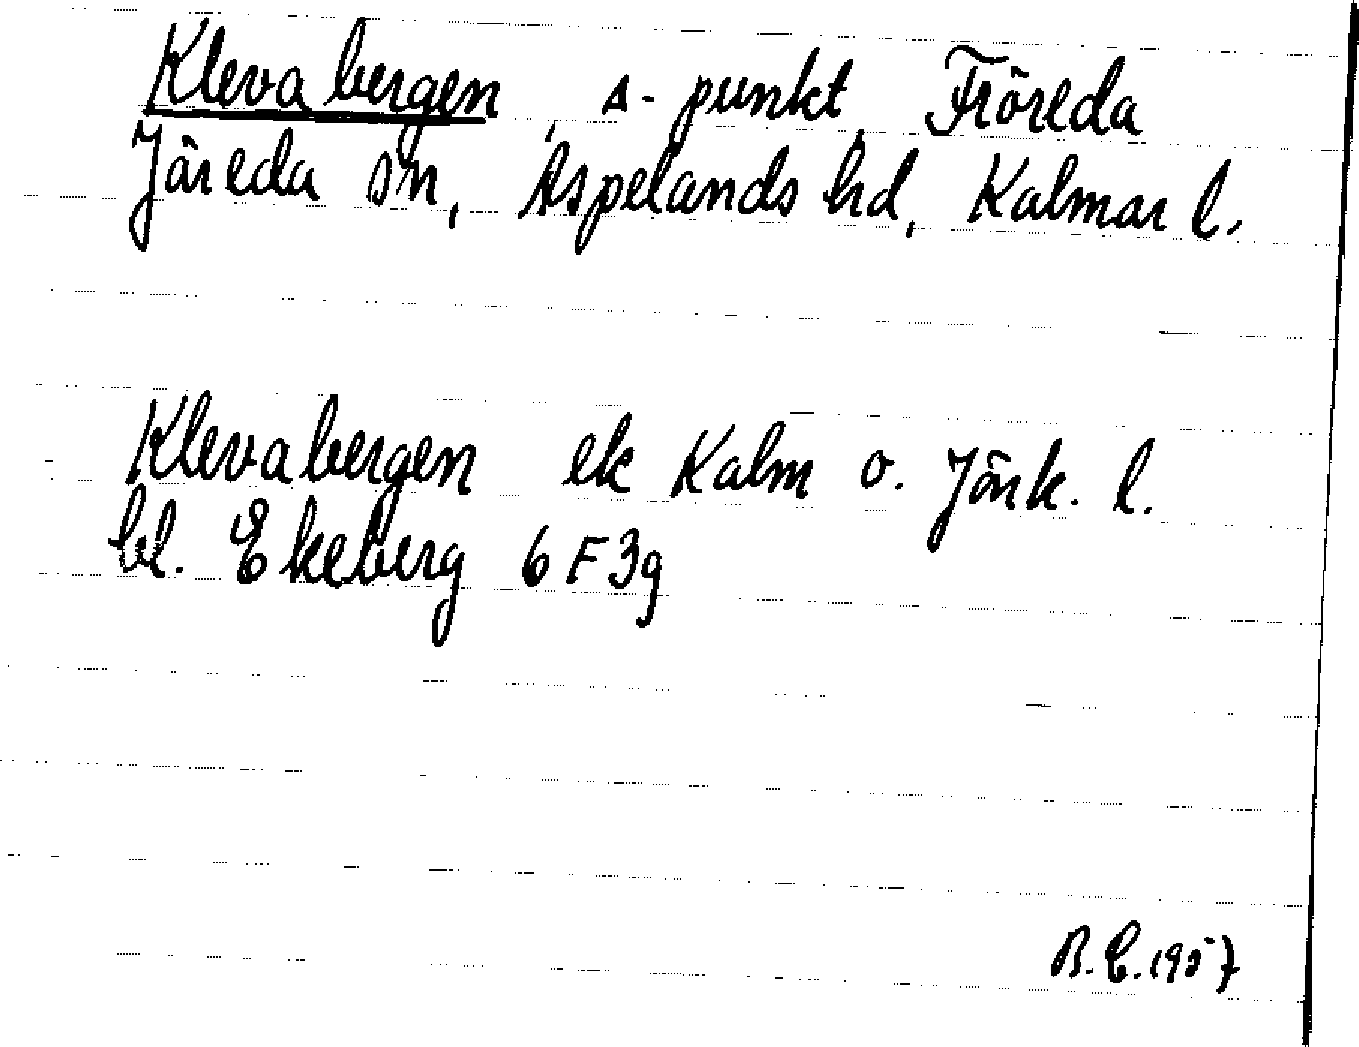 Klevabergen, Δ-punkt, Fröreda
Järeda sn, Aspelands hd, Kalmar l.
Klevabergen ek Kalm o. Jönk. l.
bl. Ekeberg 6 F 3g
B.E. 1957